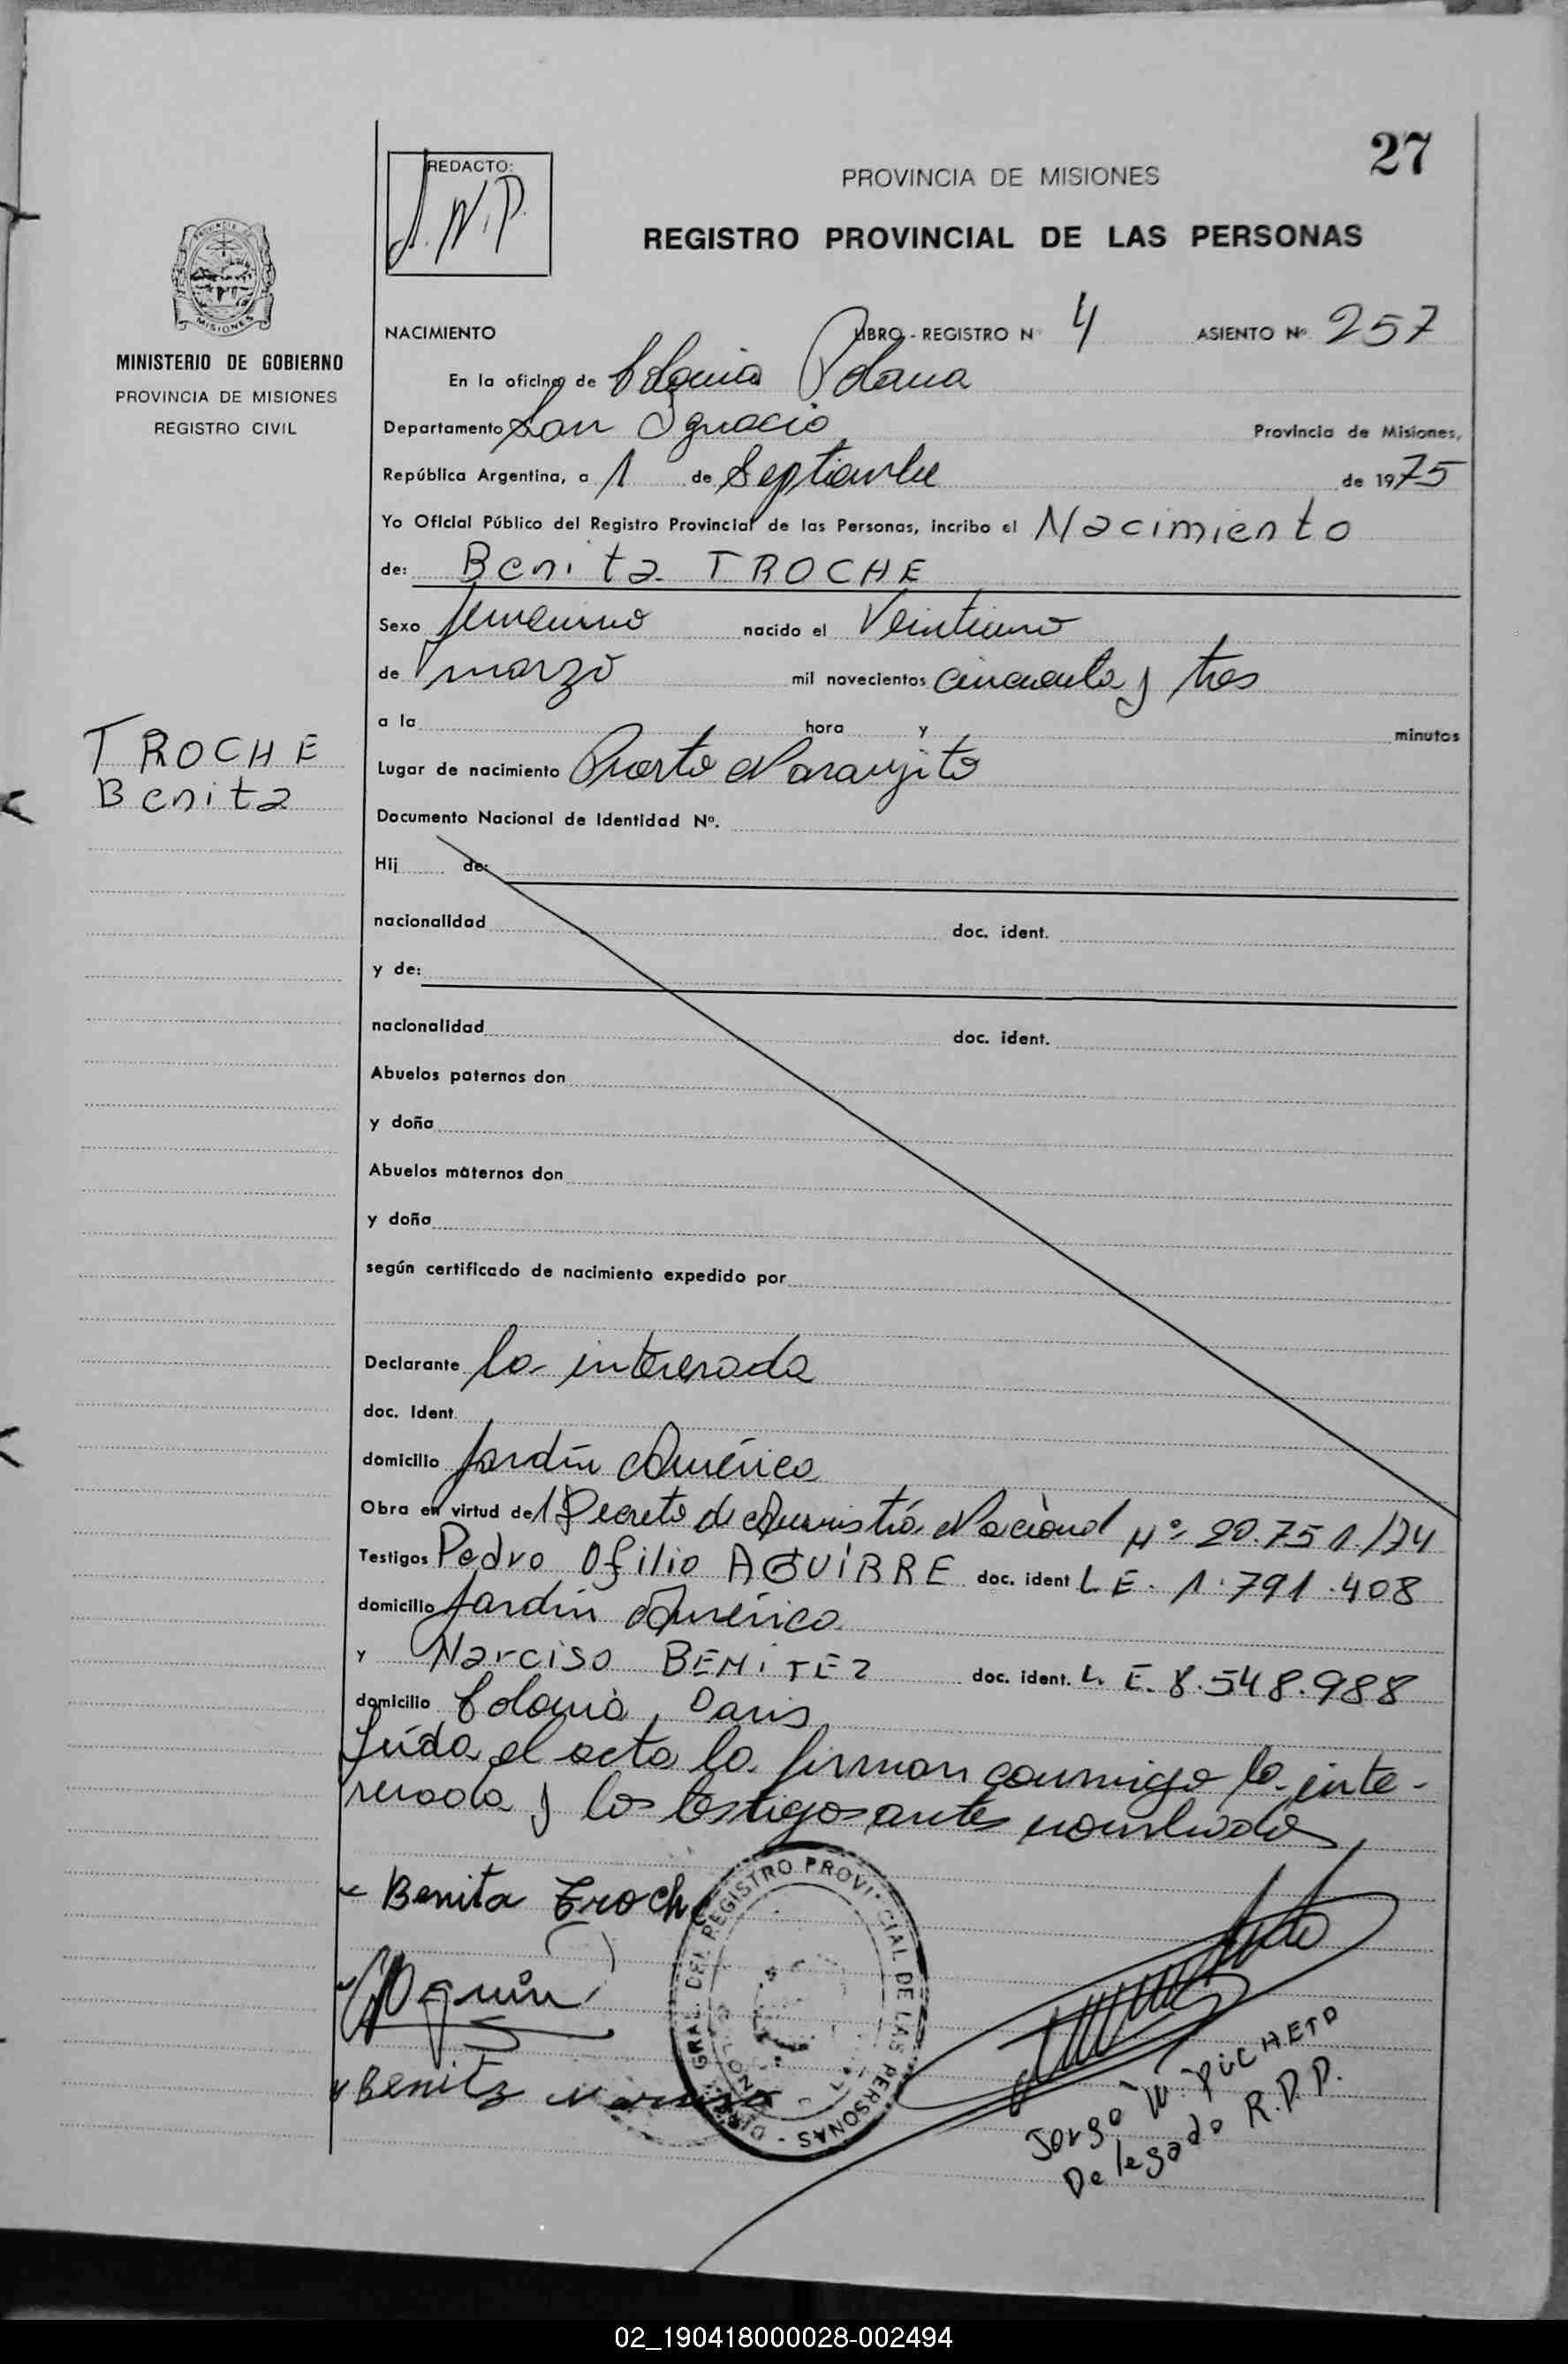 27
REDACTO:
J.N.P.
PROVINCIA DE MISIONES
REGISTRO PROVINCIAL DE LAS PERSONAS
MISIONES
MINISTERIO DE GOBIERNO
PROVINCIA DE MISIONES
REGISTRO CIVIL
NACIMIENTO LIBRO - REGISTRO Nº 4 ASIENTO Nº 257
En la oficina de Colonia Polana
Departamento San Ignacio Provincia de Misiones,
República Argentina, a 1 de Septiembre de 1975
Yo Oficial Público del Registro Provincial de las Personas, incribo el Nacimiento
de: Benita TROCHE
Sexo femenino nacido el Veintiuno
de marzo mil novecientos cincuenta y tres
a la hora y minutos
TROCHE
Benita
Lugar de nacimiento Puerto Naranjito
Documento Nacional de Identidad Nº.
Hij de:
nacionalidad doc. ident.
y de:
nacionalidad doc. ident.
Abuelos paternos don
y doña
Abuelos maternos don
y doña
según certificado de nacimiento expedido por
Declarante la interesada
doc. Ident.
domicilio Jardín América
Obra en virtud del Decreto de Amnistía Nacional Nº 20.751/74
Testigos Pedro Ofilio AGUIRRE doc. ident L E. 1.791.408
domicilio Jardín América
y Narciso BENITEZ doc. ident. L. E. 8.548.988
domicilio Colonia Oasis
Leída el acta la firman conmigo la inte-
resada y los testigos antes nombrados
Benita Troche
DIR. GRAL. DEL REGISTRO PROVINCIAL DE LAS PERSONAS -
Benitz Narciso
Jorge W. PICHETO
Delegado R.P.P.
02_190418000028-002494